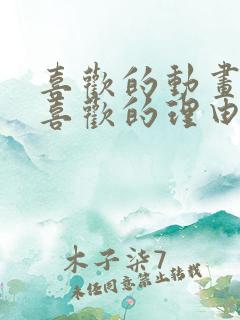 喜歡的動畫
喜歡的理由
木子柒7
未經同意禁止轉載